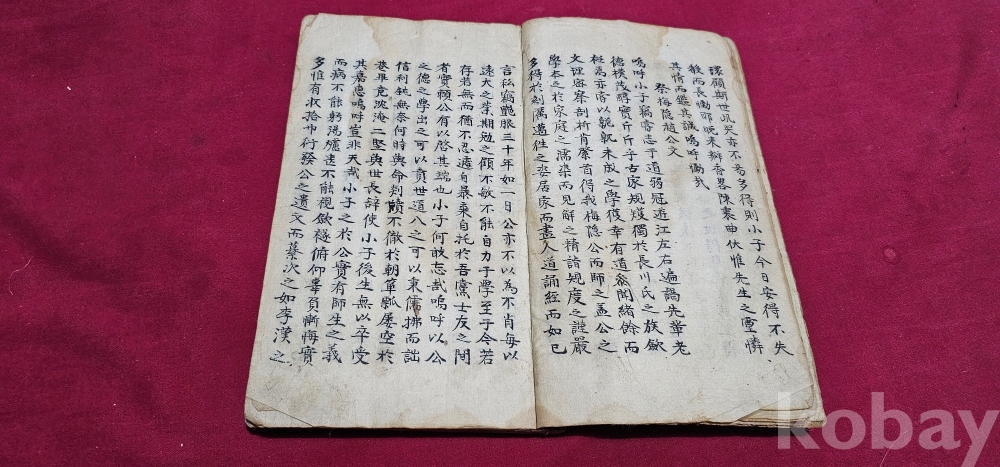 環顧斯世吼哭亦不易多得則小子今日安得不失
聲而長慟耶晚來瓣香畧陳衷曲伏惟先生之靈憐
其情而鑑其誠嗚呼慟哉
祭梅隱趙公文
嗚呼小子竊嘗志于道弱冠遊江左右遍謁先輩老
德樸茂醇實斤斤乎古家規模獨於長川氏之族歛
衽焉亦常以貌貌未成之學獲幸有道衮聞緒餘而
文理密察剖析肯綮首得我梅隱公而師之盖公之
學本之於家庭之濡染而見解之精詣規度之謹嚴
多得於刻厲邁往之姿居家而盡人道誦經而如己
言私竊艶服三十年如一日公亦不以為不肖每以
遠大之業期勉之顧不敏不能自力于學至于今若
存若無而猶不忍遽自暴棄自托於吾黨士友之間
者實賴公有以啓其端也小子何敢忘哉嗚呼以公
之德之學出之可以賁世道入之可以來儒拂而詘
信利鈍無奈何時與命剡牘不徹於朝簞瓢屢空於
巷畢竟沈淹二竪與世長辭使小子後生無以卒受
其嘉惠嗚呼豈非天哉小子之於公實有師生之義
而病不能躬湯爐遠不能視歛襚俯仰辜負慚悔實
多惟有收拾巾衍發公之遺文而纂次之如李漢之
kobay